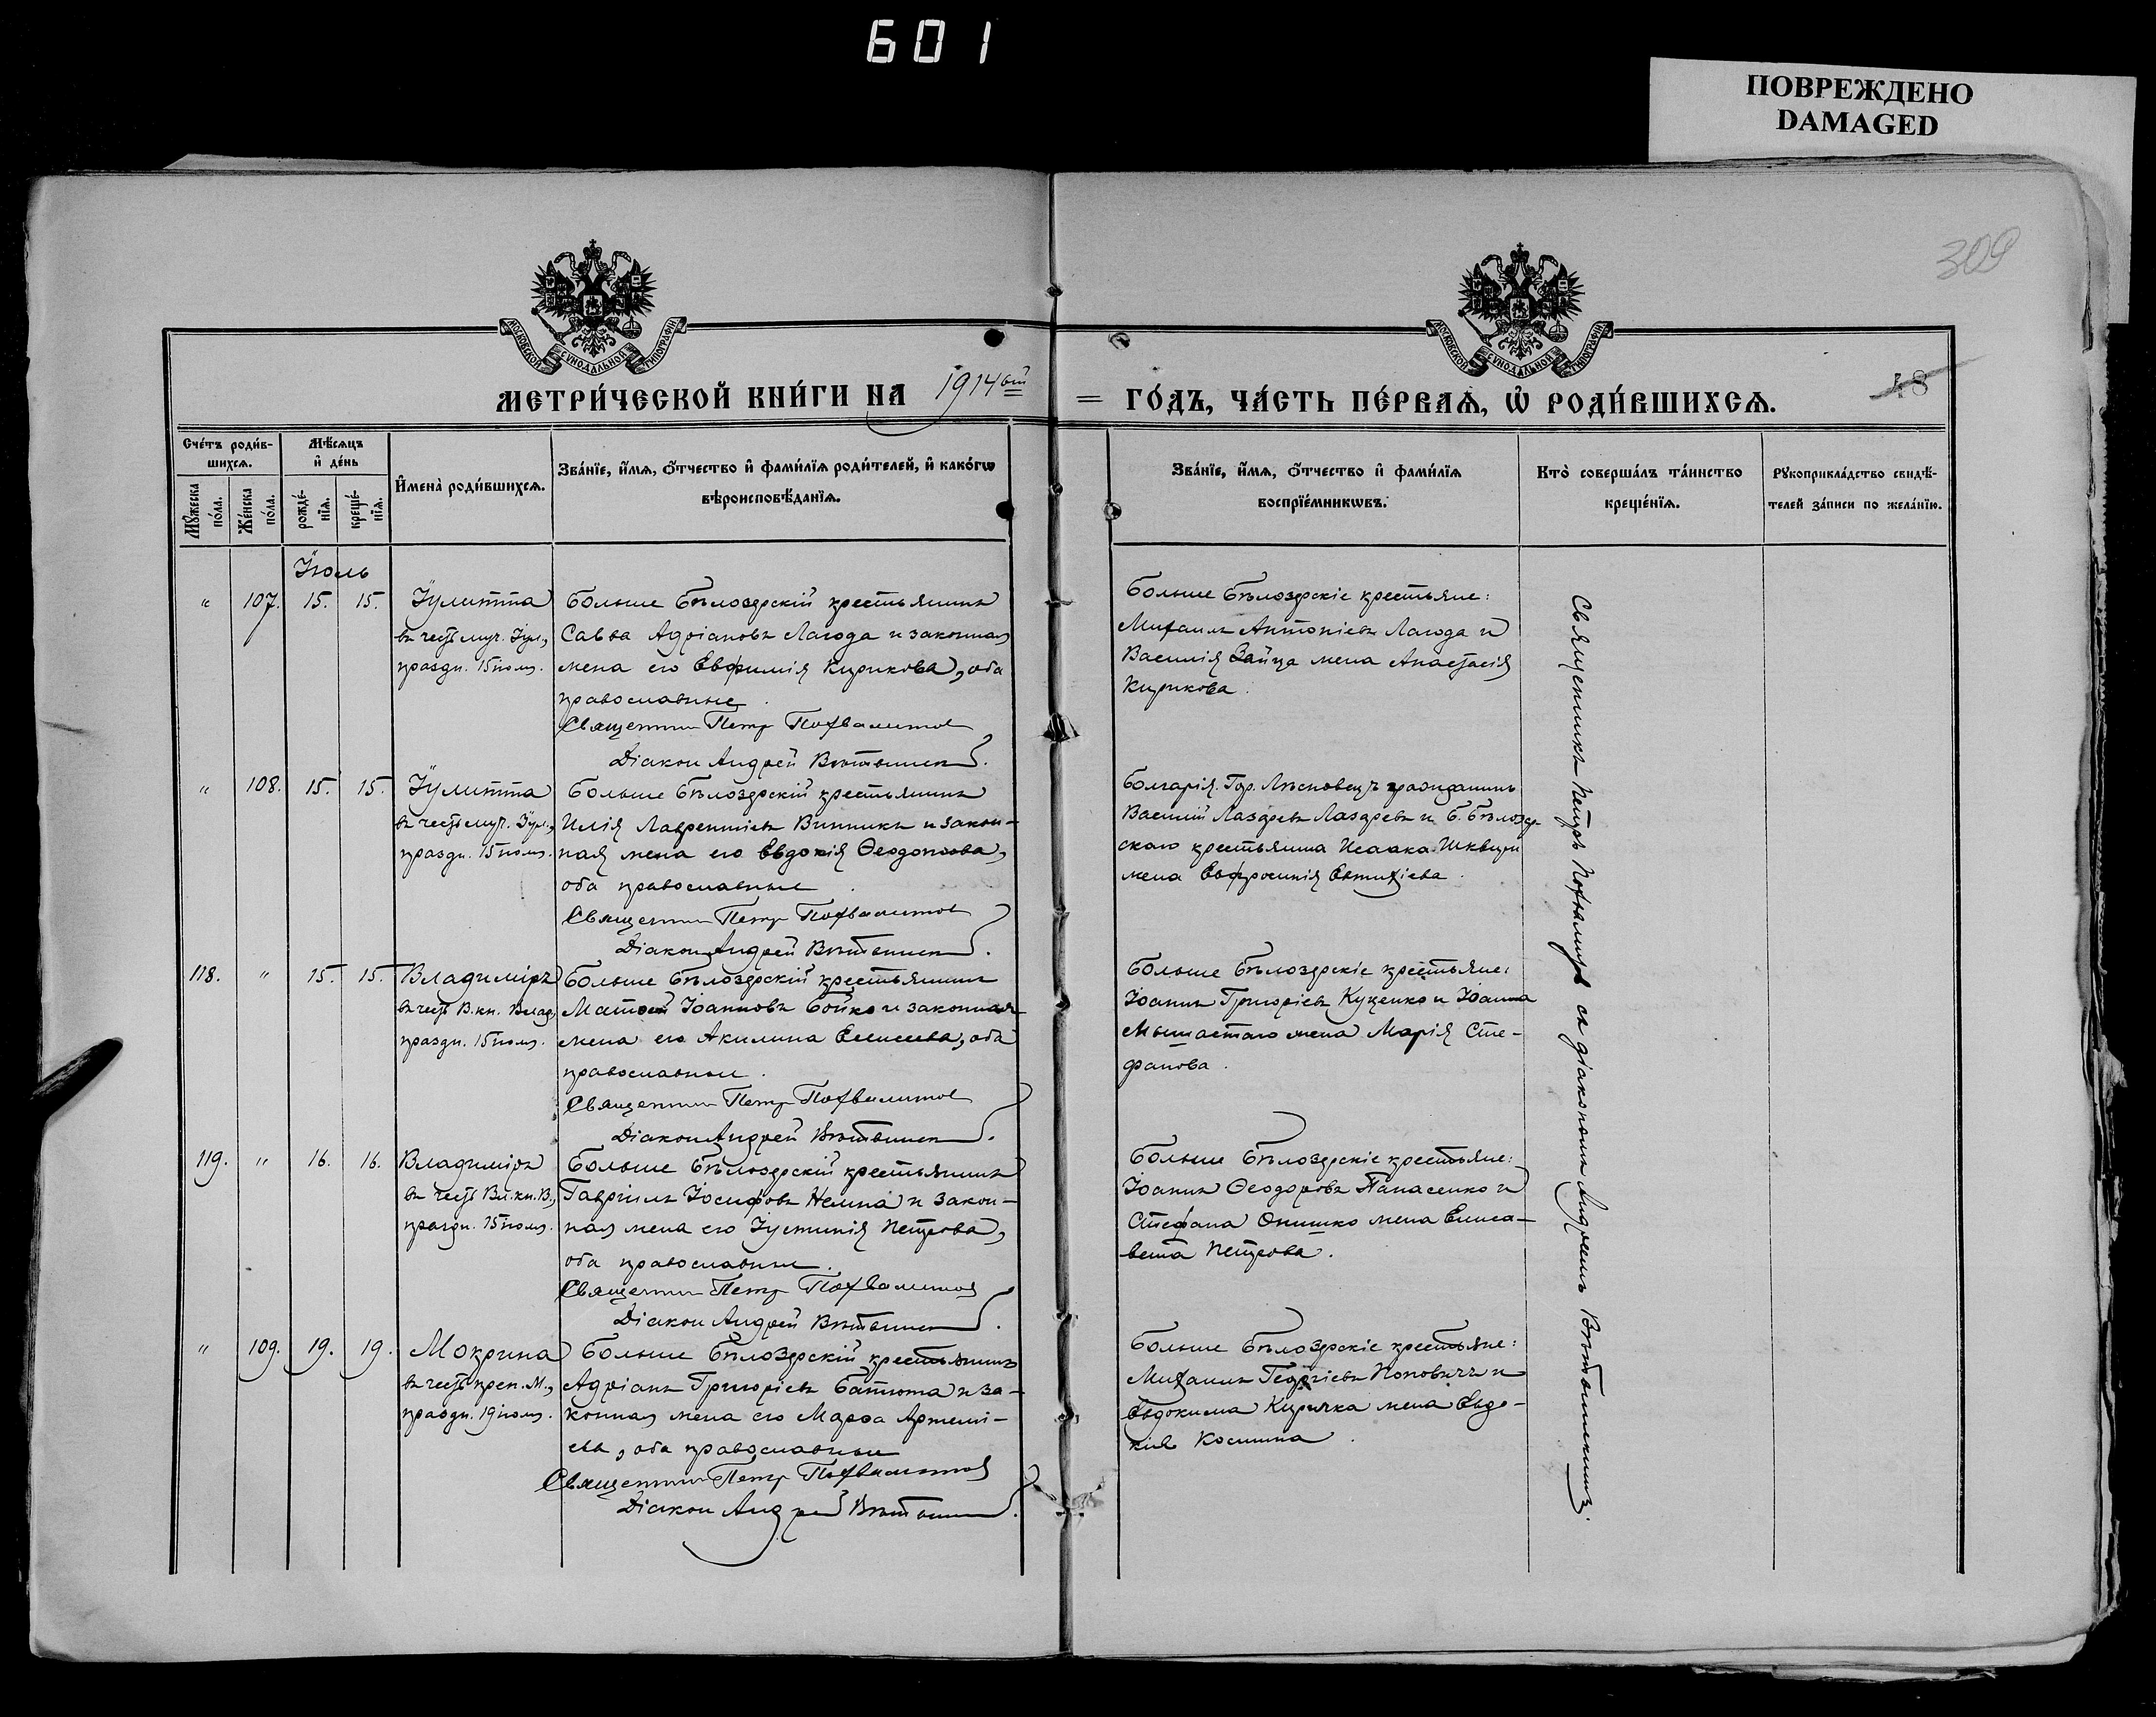 601
ПОВРЕЖДЕНО
DAMAGED
309
МОСКОВСКОЙ СѴНОДАЛЬНОЙ ТИПОГРАФІИ
МОСКОВСКОЙ СѴНОДАЛЬНОЙ ТИПОГРАФІИ
МЕТРИ́ЧЕСКОЙ КНИ́ГИ НА 1914ый = ГО́ДЪ, ЧА́СТЬ ПЕ́РВАѦ, Ѡ҆ РОДИ́ВШИХСѦ.
48
Сче́тъ роди́в-
шихсѧ.
Мѣ́сѧцъ
и҆ де́нь
И҆мена̀ роди́вшихсѧ.
Зва́нїе, и҆́мѧ, ѻ҆́тчество и҆ фами́лїѧ роди́телей, и҆ како́гѡ
вѣроисповѣ́данїѧ.
Мꙋ́жеска
по́ла.
Же́нска
по́ла.
рожде́-
нїѧ.
креще́-
нїѧ.
Зва́нїе, и҆́мѧ, ѻ҆́тчество и҆ фами́лїѧ
воспрїе́мникѡвъ.
Кто̀ соверша́лъ та́инство
креще́нїѧ.
Рꙋкоприкла́дство свидѣ́-
телей за́писи по жела́нїю.
Іюль
" 107. 15. 15. Іулитта
въ честь муч. Іул.,
праздн. 15 іюля.
Больше Бѣлозерскій крестьянинъ
Савва Адріановъ Лагода и законная
жена его Евфимія Кирикова, оба
православные.
Священникъ Петр Похвалитов
Діакон Андрей
Больше Бѣлозерскіе крестьяне:
Михаилъ Антоніевъ Лагода и
Василія Зайца жена Анастасія
Кирикова.
" 108. 15. 15. Іулитта
въ честь муч. Іул.,
праздн. 15 іюля.
Больше Бѣлозерскій крестьянинъ
Илія Лаврентіевъ Винникъ и закон-
ная жена его Евдокія Ѳеодотова,
оба православные.
Священникъ Петр Похвалитов
Діакон Андрей
Болгарія. Гор. Лясковецъ гражданинъ
Василій Лазаревъ Лазаревъ и Б. Бѣлозер
скаго крестьянина Исаака Шквыри
жена Евфросинія Евтихіева.
118. " 15. 15. Владиміръ
въ честь В. кн. Влад.,
праздн. 15 іюля.
Больше Бѣлозерскій крестьянинъ
Матѳей Іоанновъ Бойко и законная
жена его Акилина Елисеева, оба
православные.
Священникъ Петр Похвалитов
Діакон Андрей
Больше Бѣлозерскіе крестьяне:
Іоаннъ Григоріевъ Куценко и Іоанна
Мышастаго жена Марія Сте-
фанова.
119. " 16. 16. Владиміръ
въ честь Вл. кн. В.,
праздн. 15 іюля.
Больше Бѣлозерскій крестьянинъ
Гавріилъ Іосифовъ Нелипа и закон-
ная жена его Іустинія Петрова,
оба православные.
Священникъ Петр Похвалитов
Діакон Андрей
Больше Бѣлозерскіе крестьяне:
Іоаннъ Ѳеодоровъ Панасенко и
Стефана Онишко жена Елиса-
вета Петрова.
" 109. 19. 19. Мокрина
въ честь преп. М.,
праздн. 19 іюля.
Больше Бѣлозерскій крестьянинъ
Адріанъ Григоріевъ Батюта и за-
конная жена его Марѳа Артемі-
ева, оба православные
Священникъ Петр Похвалитов
Діакон Андрей
Больше Бѣлозерскіе крестьяне:
Михаилъ Георгіевъ Поповичъ и
Евдокима Киричка жена Евдо-
кія Космина.
Священникъ Петръ Похвалитовъ съ діакономъ Андреемъ